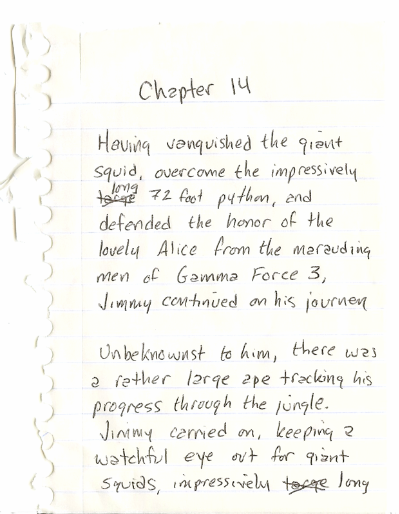 Chapter 14
Having vanquished the giant
squid, overcome the impressively
long
large 72 foot python, and
defended the honor of the
lovely Alice from the marauding
men of Gamma Force 3,
Jimmy continued on his journey
Unbeknownst to him, there was
a rather large ape tracking his
progress through the jungle.
Jimmy carried on, keeping a
watchful eye out for giant
squids, impressively large long